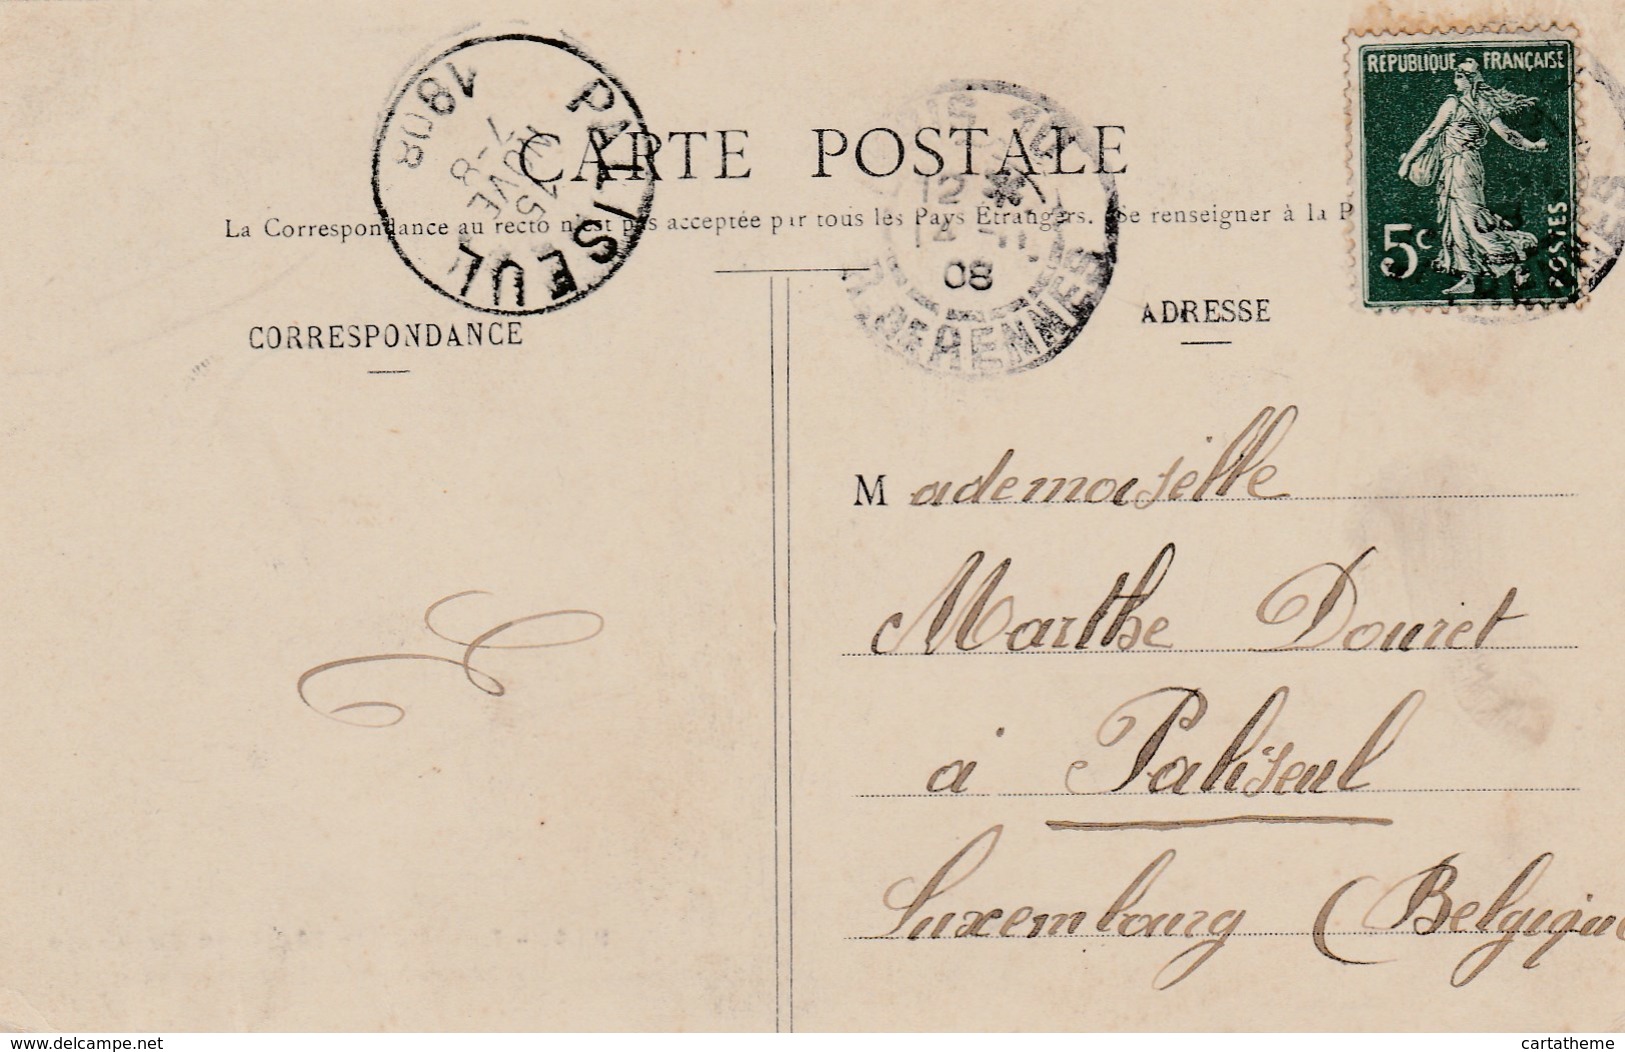 REPUBLIQUE FRANÇAISE
5c
POSTES
PALISEUL
7-8
15
NOVE
1908
12
08
ARDENNES
CARTE POSTALE
La Correspondance au recto n'est pas acceptée par tous les Pays Étrangers. Se renseigner à la P
CORRESPONDANCE
ADRESSE
Mademoiselle
Marthe Douret
à Paliseul
Luxembourg (Belgique
www.delcampe.net
cartatheme